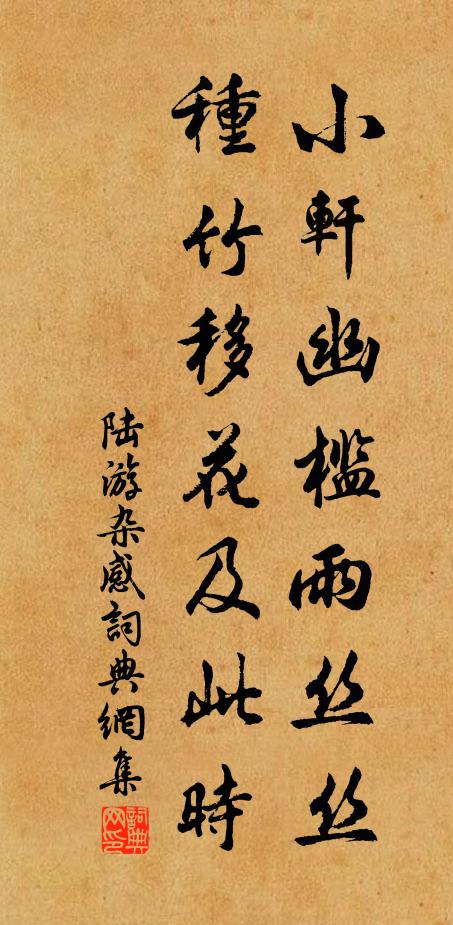 小軒幽檻雨丝丝
種竹移花及此時
陆游杂感詞典網集
詞典網印